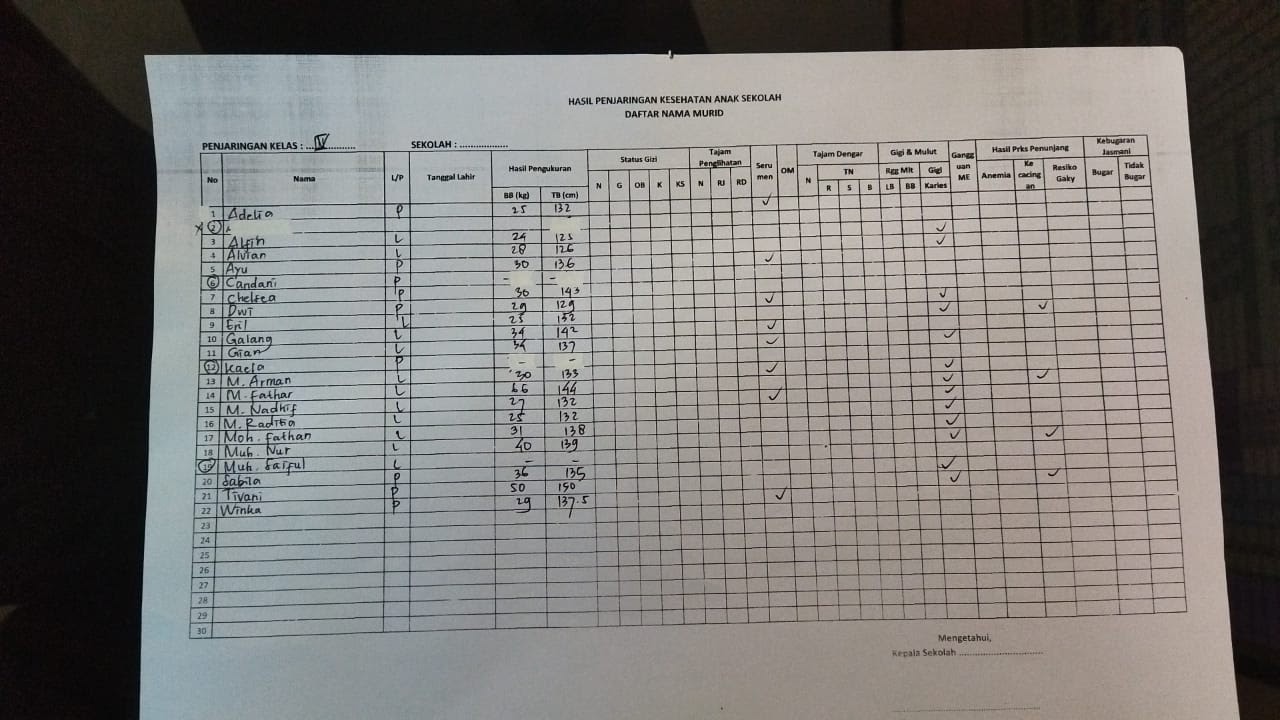 HASIL PENJARINGAN KESEHATAN ANAK SEKOLAH
DAFTAR NAMA MURID
PENJARINGAN KELAS : ... IV ............ SEKOLAH : ..................
No Nama L/P Tanggal Lahir Hasil Pengukuran Status Gizi Tajam Penglihatan Seru men OM Tajam Dengar Gigi & Mulut Gangg uan ME Hasil Prks Penunjang Kebugaran Jasmani
BB (kg) TB (cm) N G OB K KS N RJ RD N TN R S B Rgg Mlt LB BB Gigi Karies Anemia Ke cacing an Resiko Gaky Bugar Tidak Bugar
1 Adelia P 25 132 ✓
x 2 -
3 Alfin L 24 125 ✓
4 Alvian L 28 126 ✓
5 Ayu P 30 136 ✓
6 Candani P - -
7 Chelsea P 30 143 ✓
8 Dwi P 29 129 ✓ ✓ ✓
9 Eril L 25 132
10 Galang L 34 142 ✓ ✓
11 Gian L 34 137 ✓
12 Kaela P - -
13 M. Arman L 30 133 ✓ ✓
14 M. Fathar L 66 144 ✓ ✓
15 M. Nadhif L 27 132 ✓ ✓
16 M. Raditia L 25 132 ✓
17 Moh. Fathan L 31 138 ✓
18 Muh. Nur L 40 139 ✓ ✓
19 Muh. Saiful L - -
20 Sabila P 36 135 ✓
21 Tivani P 50 150 ✓ ✓
22 Winka P 29 137.5 ✓
23
24
25
26
27
28
29
30
Mengetahui,
Kepala Sekolah ..............................